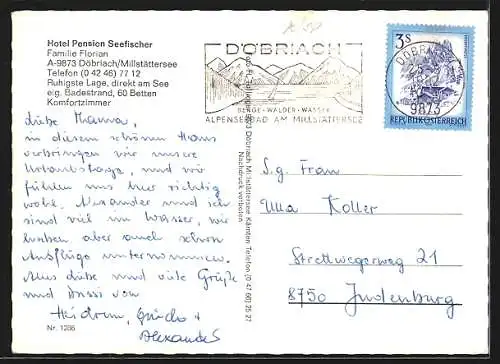 Hotel Pension Seefischer
Familie Florian
A-9873 Döbriach/Millstättersee
Telefon (0 42 46) 77 12
Ruhigste Lage, direkt am See
eig. Badestrand, 60 Betten
Komfortzimmer
DÖBRIACH
BERGE-WÄLDER-WASSER
ALPENSEEBAD AM MILLSTÄTTERSEE
3 S
REPUBLIK ÖSTERREICH
DÖBRIACH
9873
liebe Mama,
in diesem schönen Haus
verbringen wir unsere
Urlaubstage, und wir
fühlen uns hier richtig
wohl. Alexander und ich
sind viel im Wasser, wir
haben aber auch schon
Ausflüge unternommen.
Alles Liebe und viele Grüße
und Bussi von
Heidrun, Guido +
Alexander
Nr. 1286
9873 Döbriach Millstättersee Kärnten Telefon (0 42 46)
Nachdruck verboten
S.g. Frau
Ulla Koller
Strettwegerweg 21
8750 Judenburg